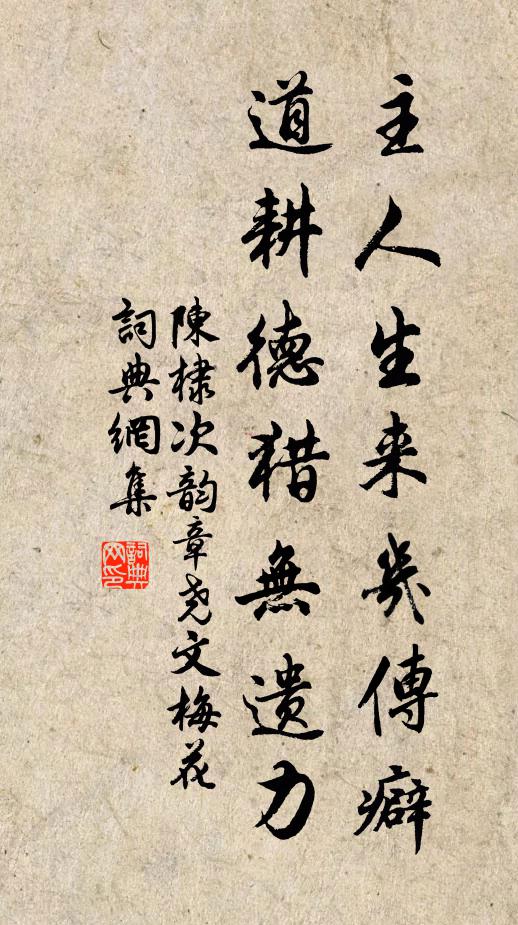 主人生来几傳癖
道耕德猎無遗力
陳棣次韵章尧文梅花
詞典網集
詞典
网印